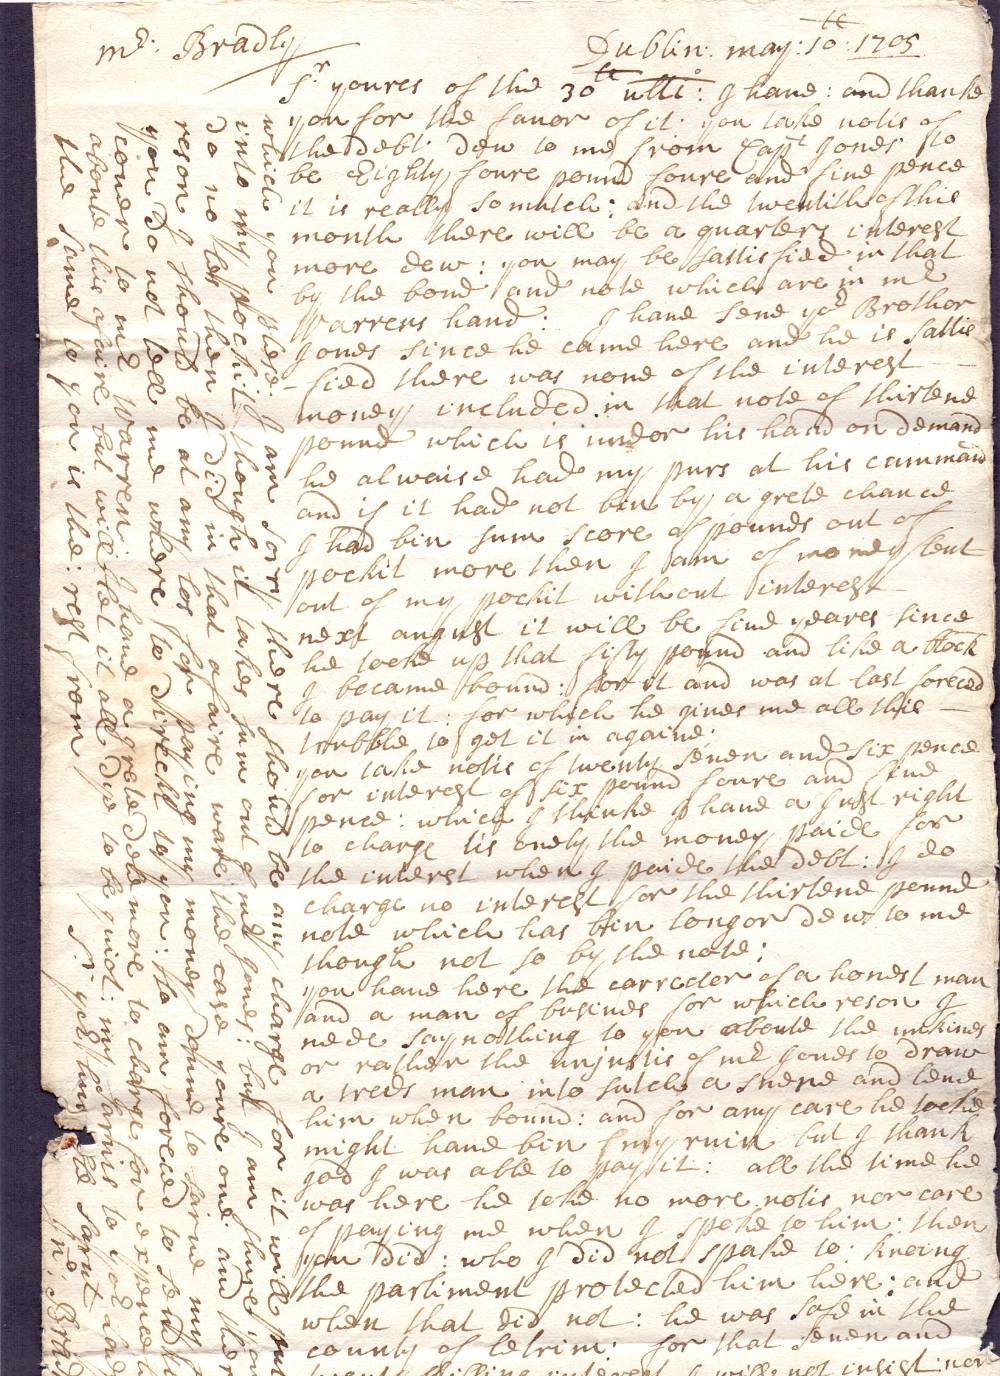 mr: Bradly
Dublin: may: 10th: 1705
Sr youres of the 30th ulto: I have: and thanke
you for the favor of it: you take notis of
the debt dew to me from Capt Jones to
be Eighty foure pound foure and five pence
it is really so mutch: and the twentith of this
month there will be a quarters interest
more dew: you may be sattisfied in that
by the bond and note which are in mr
Warrens hand: I have send yor Brother
Jones since he came here and he is sattis
fied there was none of the interest
money included in that note of thirtene
pound which is under his hand on demand
he alwaise had my purs at his cammand
and if it had not bin by a grete chance
I had bin sum score of pounds out of
pockit more then I am of money lent
out of my pockit without interest
next august it will be five yeares since
he tooke up that fifty pound and like a block
I became bound: for it and was at last foreced
to pay it: for which he gives me all this
trubble to get it in againe:
you take notis of twenty seven and six pence
for interest of six pound foure and five
pence: which I thinke I have a Just right
to charge tis onely the money paide for
the interest when I paide the debt: I do
charge no interest for the thirtene pound
note which has bin longor dew to me
though not so by the note:
you have here the carrector of a honest man
and a man of busines for which reson I
nede say nothing to you aboute the unkines
or rather the unjustis of mr Jones to draw
a treds man into sutch a snene and leve
him when bound: and for any care he tooke
might have bin my ruin but I thank
god I was able to pay it: all the time he
was here he toke no more notis nor care
of paying me when I spoke to him: then
you did: who I did not spake to: kneing
the parliment protected him here: and
when that did not: he was safe in the
county of Letrim: for that seven and
twenty shilling interest I will not insist: nor
which you plese: I am sory there should be any charge for it will put
into my pockit though it takes sum out of mr Jones: but I am shure you
do no les then I did in that afaire ware the case youre one: and there
reson I should be at any los for paying my money
you do not tell me where to direckt to you: so am foreced to send
couer to mr Warren: I have a grete dele more to charge for expence
aboute this afaire but will let it all dye to be quiot: my sarvis to your lady
the same to you is the: rest from
Sr yor hum ble sarvt
Jno: Brad